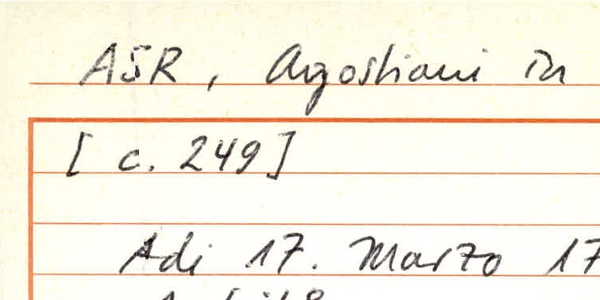 ASR, Agostiani in
[c. 249]
Adi 17. Marzo 17